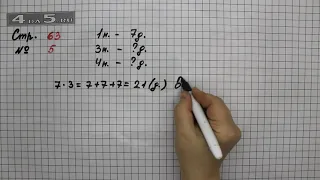 4 на 5.ru
Стр. 63
№ 5
1н. - 7д.
3н. - ?д.
4н. - ?д.
7·3=7+7+7=21(д.)